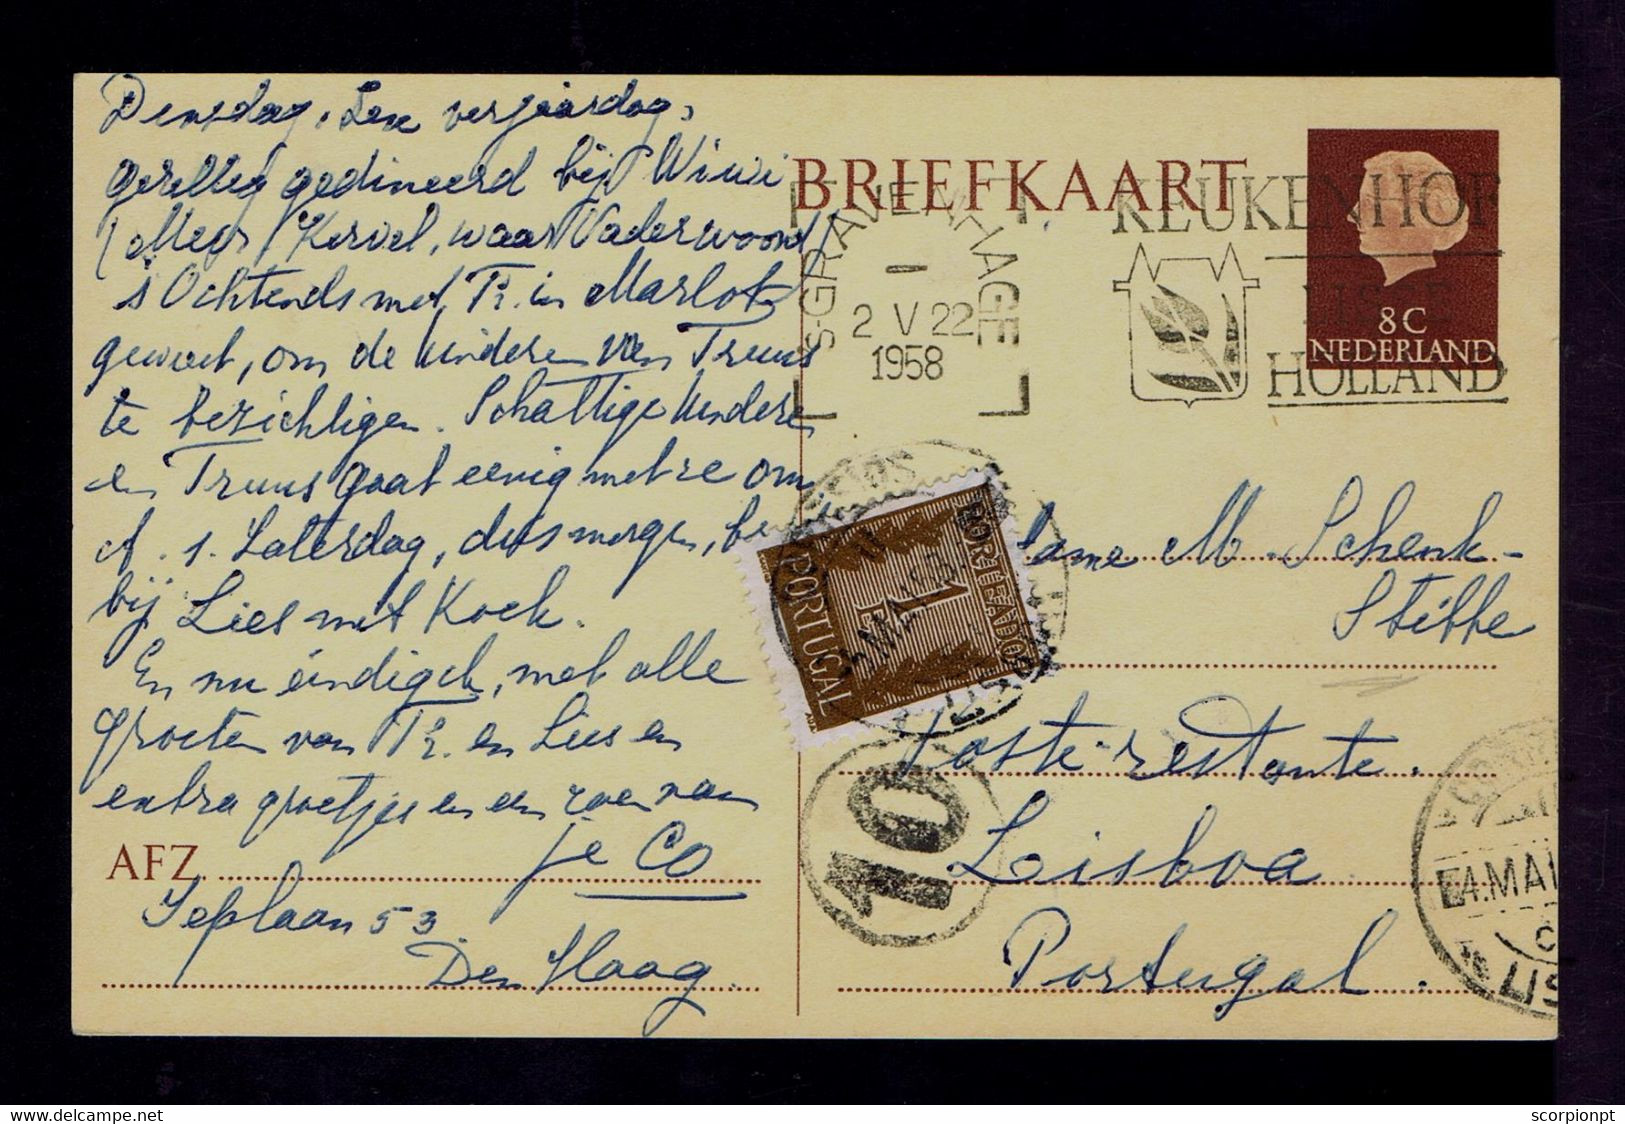 Densdag. Leue verjaardag,
gezellig gedineerd bij Wiwi
Kervel, waar Vader woond/
's Ochtends met Tr. in Marlot
geweest, om de kinderen van Truus
te bezichtigen. Schattige kinderen
en Truus gaat eenig met ze om
1. Zaterdag, dus morgen,
bij Lies met Koek.
En nu eindig ik, met alle
groeten van Tr. en Lies en
extra groetjes en een zoen van
je Co
AFZ.
Seplaan 53
Den Haag.
BRIEFKAART
'S-GRAVENHAGE
2 V 22
1958
KEUKENHOF
LISSE
HOLLAND
8 C
NEDERLAND
PORTUGAL
PORTEADO
1
M. Schenk-
Stibbe
Poste-restante.
Lisboa
Portugal.
10
4.MAI
LIS
delcampe.net
scorpionpt